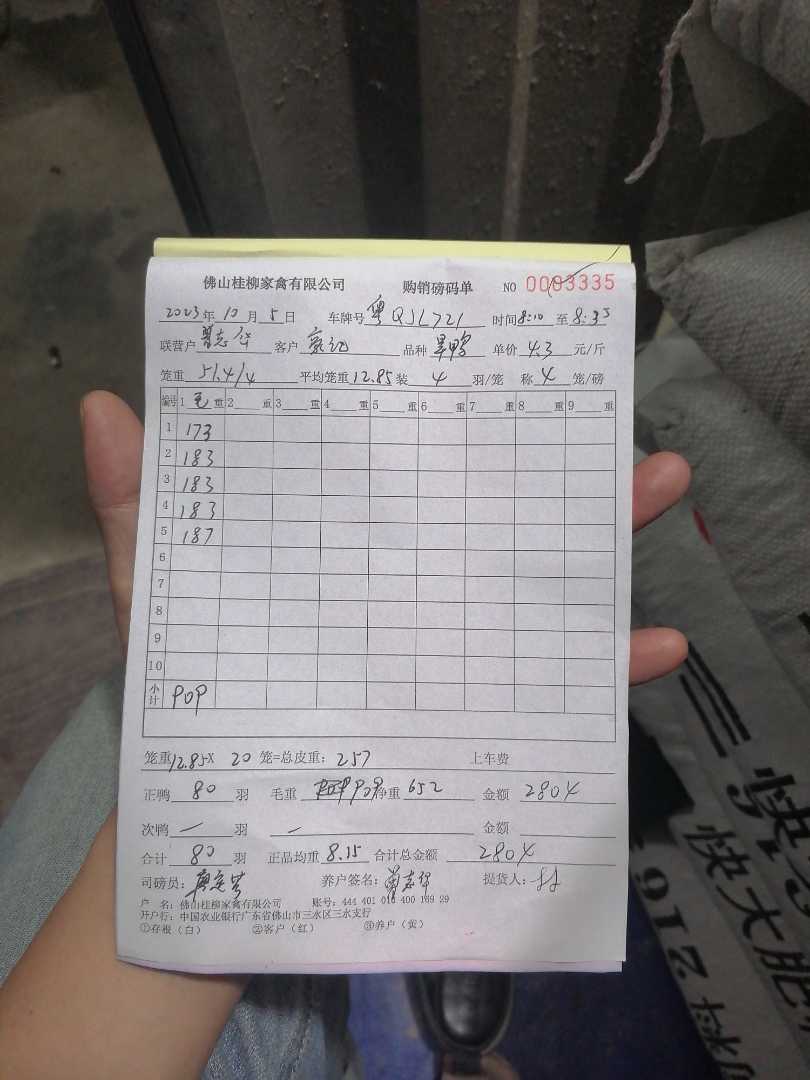 佛山桂柳家禽有限公司 购销磅码单 NO 0003335
2023年10月5日 车牌号 粤QJL721 时间8:10至8:35
联营户 曾志华 客户 品种 单价 4.3 元/斤
笼重 51.4/4 平均笼重12.85装 4 羽/笼 称 4 笼/磅
编号 1 毛 重 2 重 3 重 4 重 5 重 6 重 7 重 8 重 9 重
1 173
2 183
3 183
4 183
5 187
6
7
8
9
10
小计 909
笼重12.85X 20 笼=总皮重: 257 上车费
正鸭 80 羽 毛重 909 净重 652 金额 2804
次鸭 — 羽 — 金额
合计 80 羽 正品均重 8.15 合计总金额 2804
司磅员: 养户签名: 曾志华 提货人:
户 名: 佛山桂柳家禽有限公司 账号: 444 401 010 400 169 29
开户行: 中国农业银行广东省佛山市三水区三水支行
①存根（白） ②客户（红） ③养户（黄）
快大肥
916